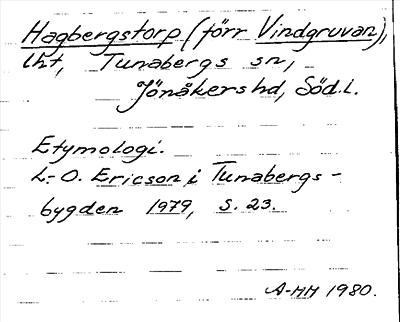 Hagbergstorp (förr Vindgruvan),
lht, Tunabergs sn,
Jönåkers hd, Söd.l.
Etymologi.
L.-O. Ericson i Tunabergs-
bygden 1979, s. 23.
A-MH 1980.